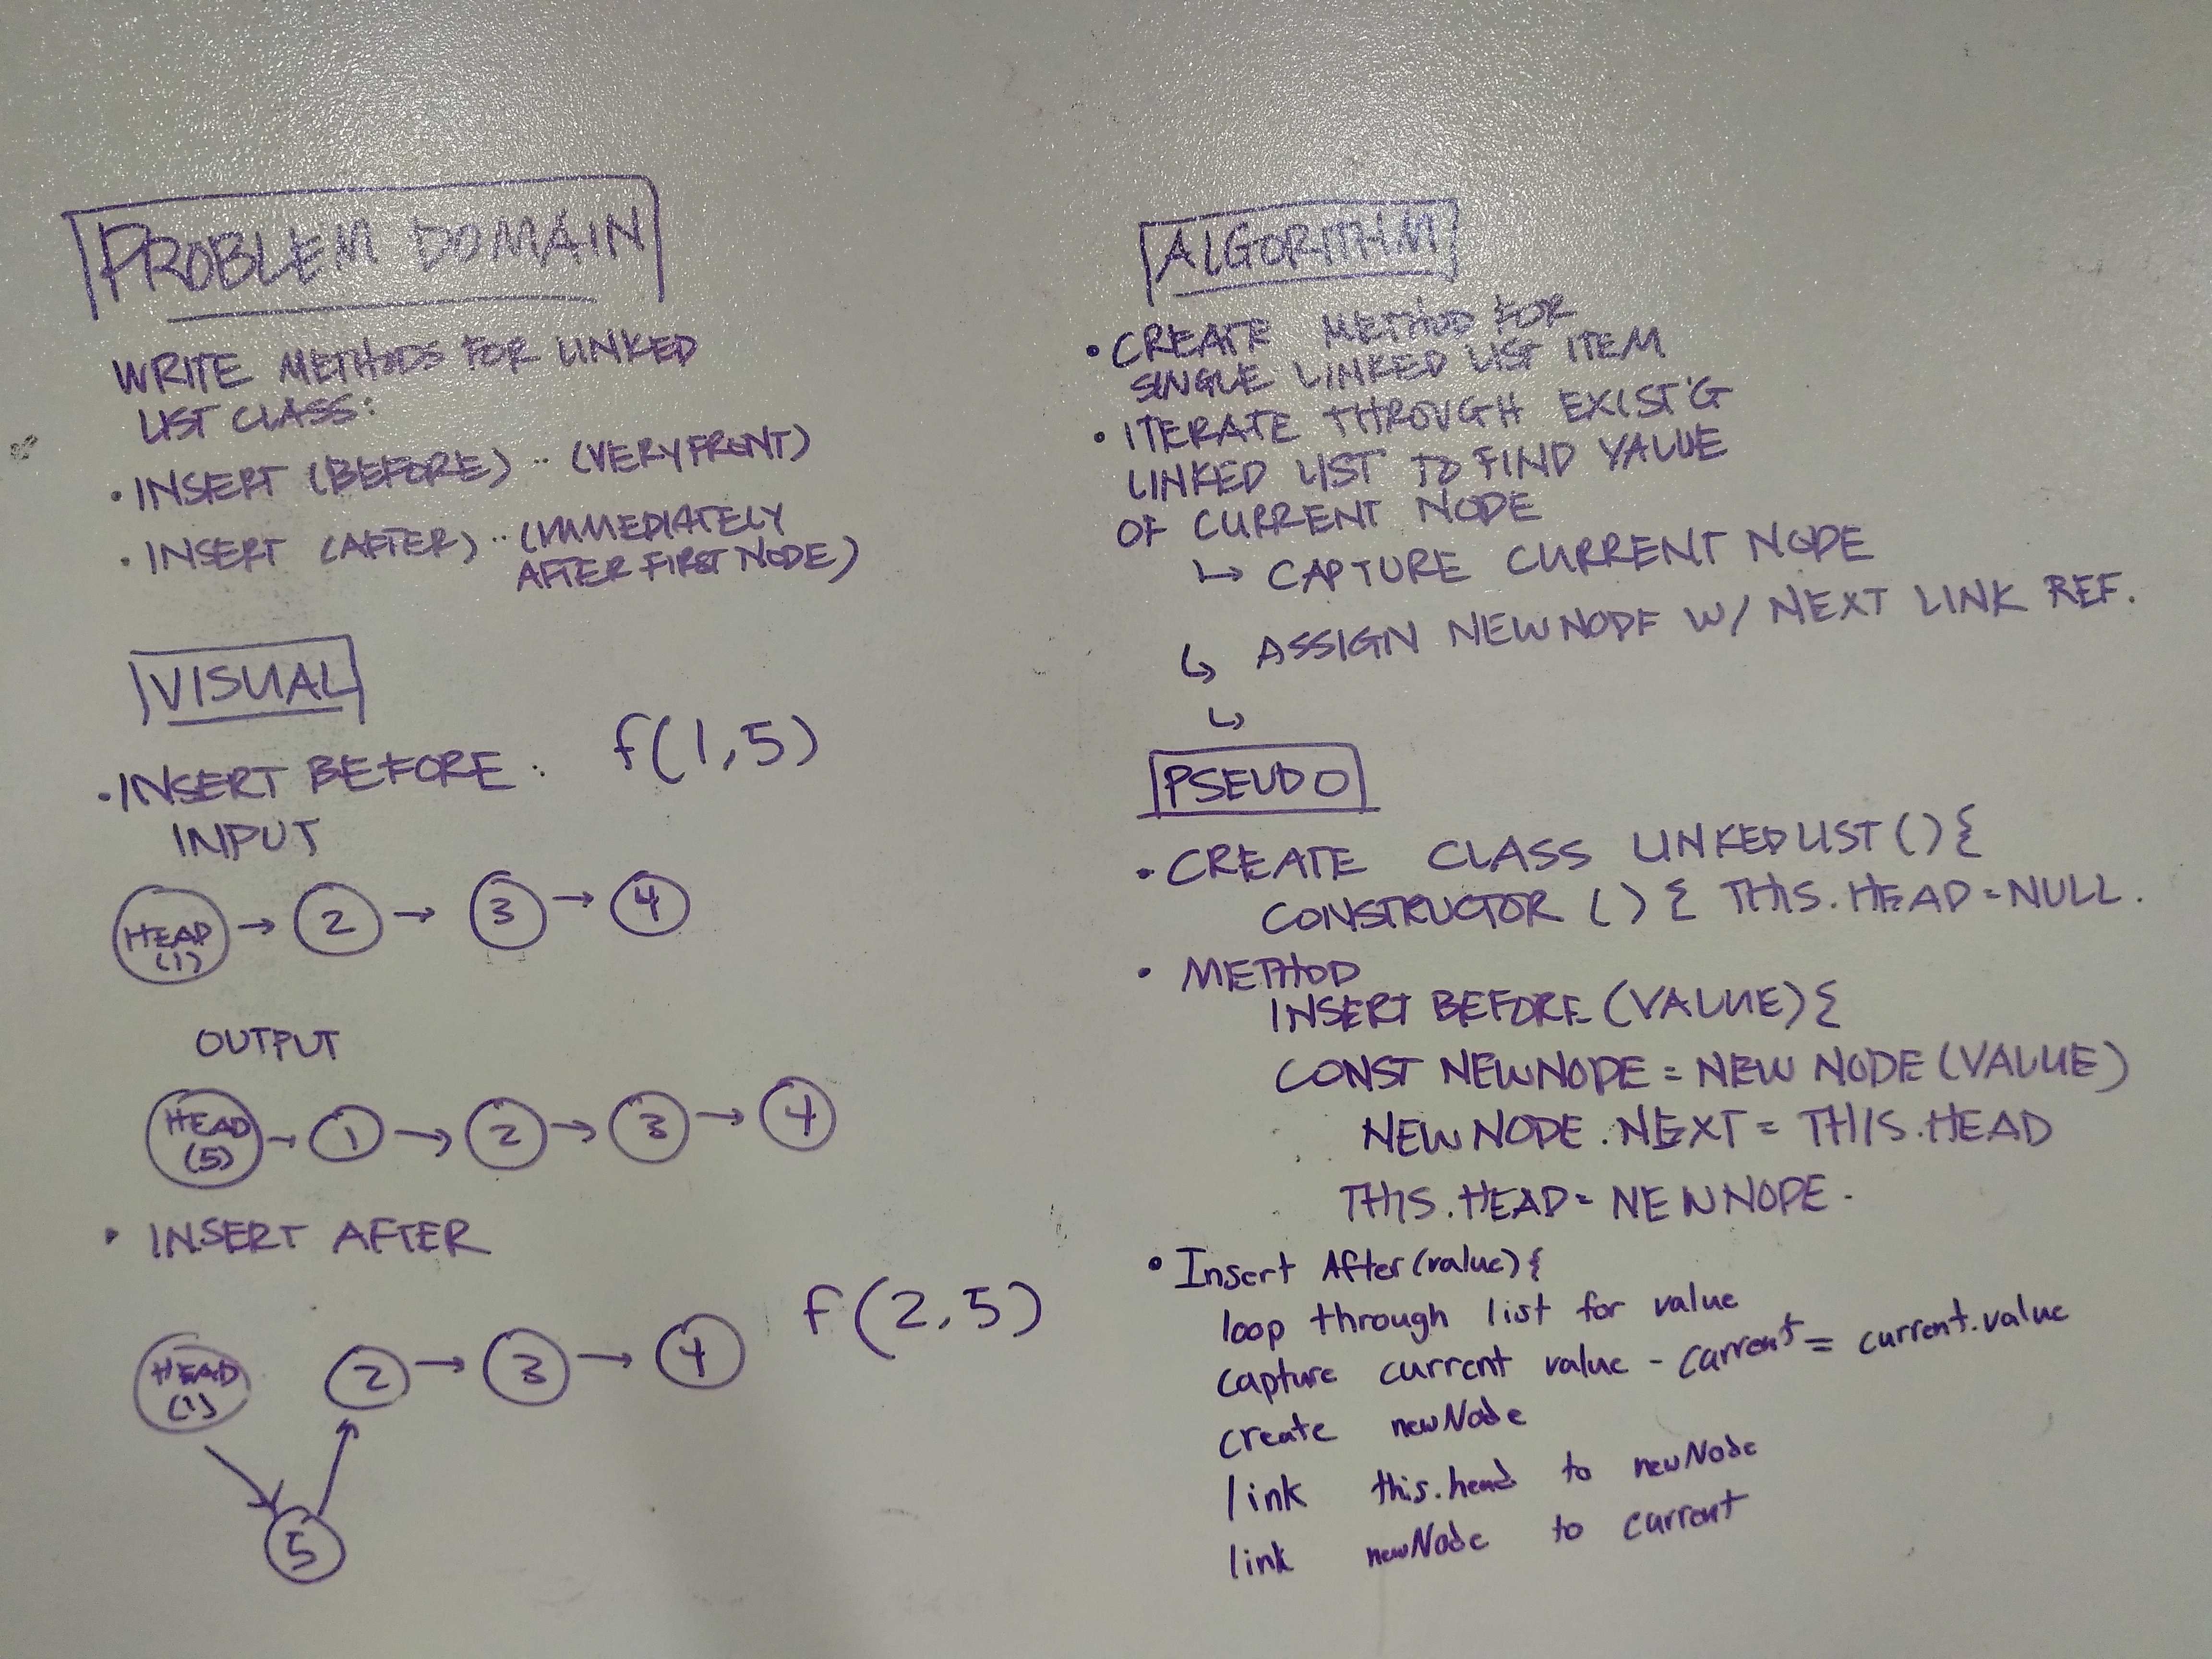 PROBLEM DOMAIN
WRITE METHODS FOR LINKED
LIST CLASS:
• INSERT (BEFORE) .. (VERY FRONT)
• INSERT (AFTER) .. (IMMEDIATELY
AFTER FIRST NODE)
VISUAL
• INSERT BEFORE : f(1,5)
INPUT
HEAD (1) → 2 → 3 → 4
OUTPUT
HEAD (5) → 1 → 2 → 3 → 4
• INSERT AFTER
f(2,5)
HEAD (1) 2 → 3 → 4
5
ALGORITHM
• CREATE METHOD FOR
SINGLE LINKED LIST ITEM
• ITERATE THROUGH EXIST'G
LINKED LIST TO FIND VALUE
OF CURRENT NODE
↳ CAPTURE CURRENT NODE
↳ ASSIGN NEWNODE W/ NEXT LINK REF.
↳
PSEUDO
• CREATE CLASS LINKEDLIST () {
CONSTRUCTOR () { THIS.HEAD = NULL.
• METHOD
INSERT BEFORE (VALUE) {
CONST NEWNODE = NEW NODE (VALUE)
NEWNODE.NEXT = THIS.HEAD
THIS.HEAD = NEWNODE.
• Insert After (value) {
loop through list for value
capture current value - current = current.value
create newNode
link this.head to newNode
link newNode to current